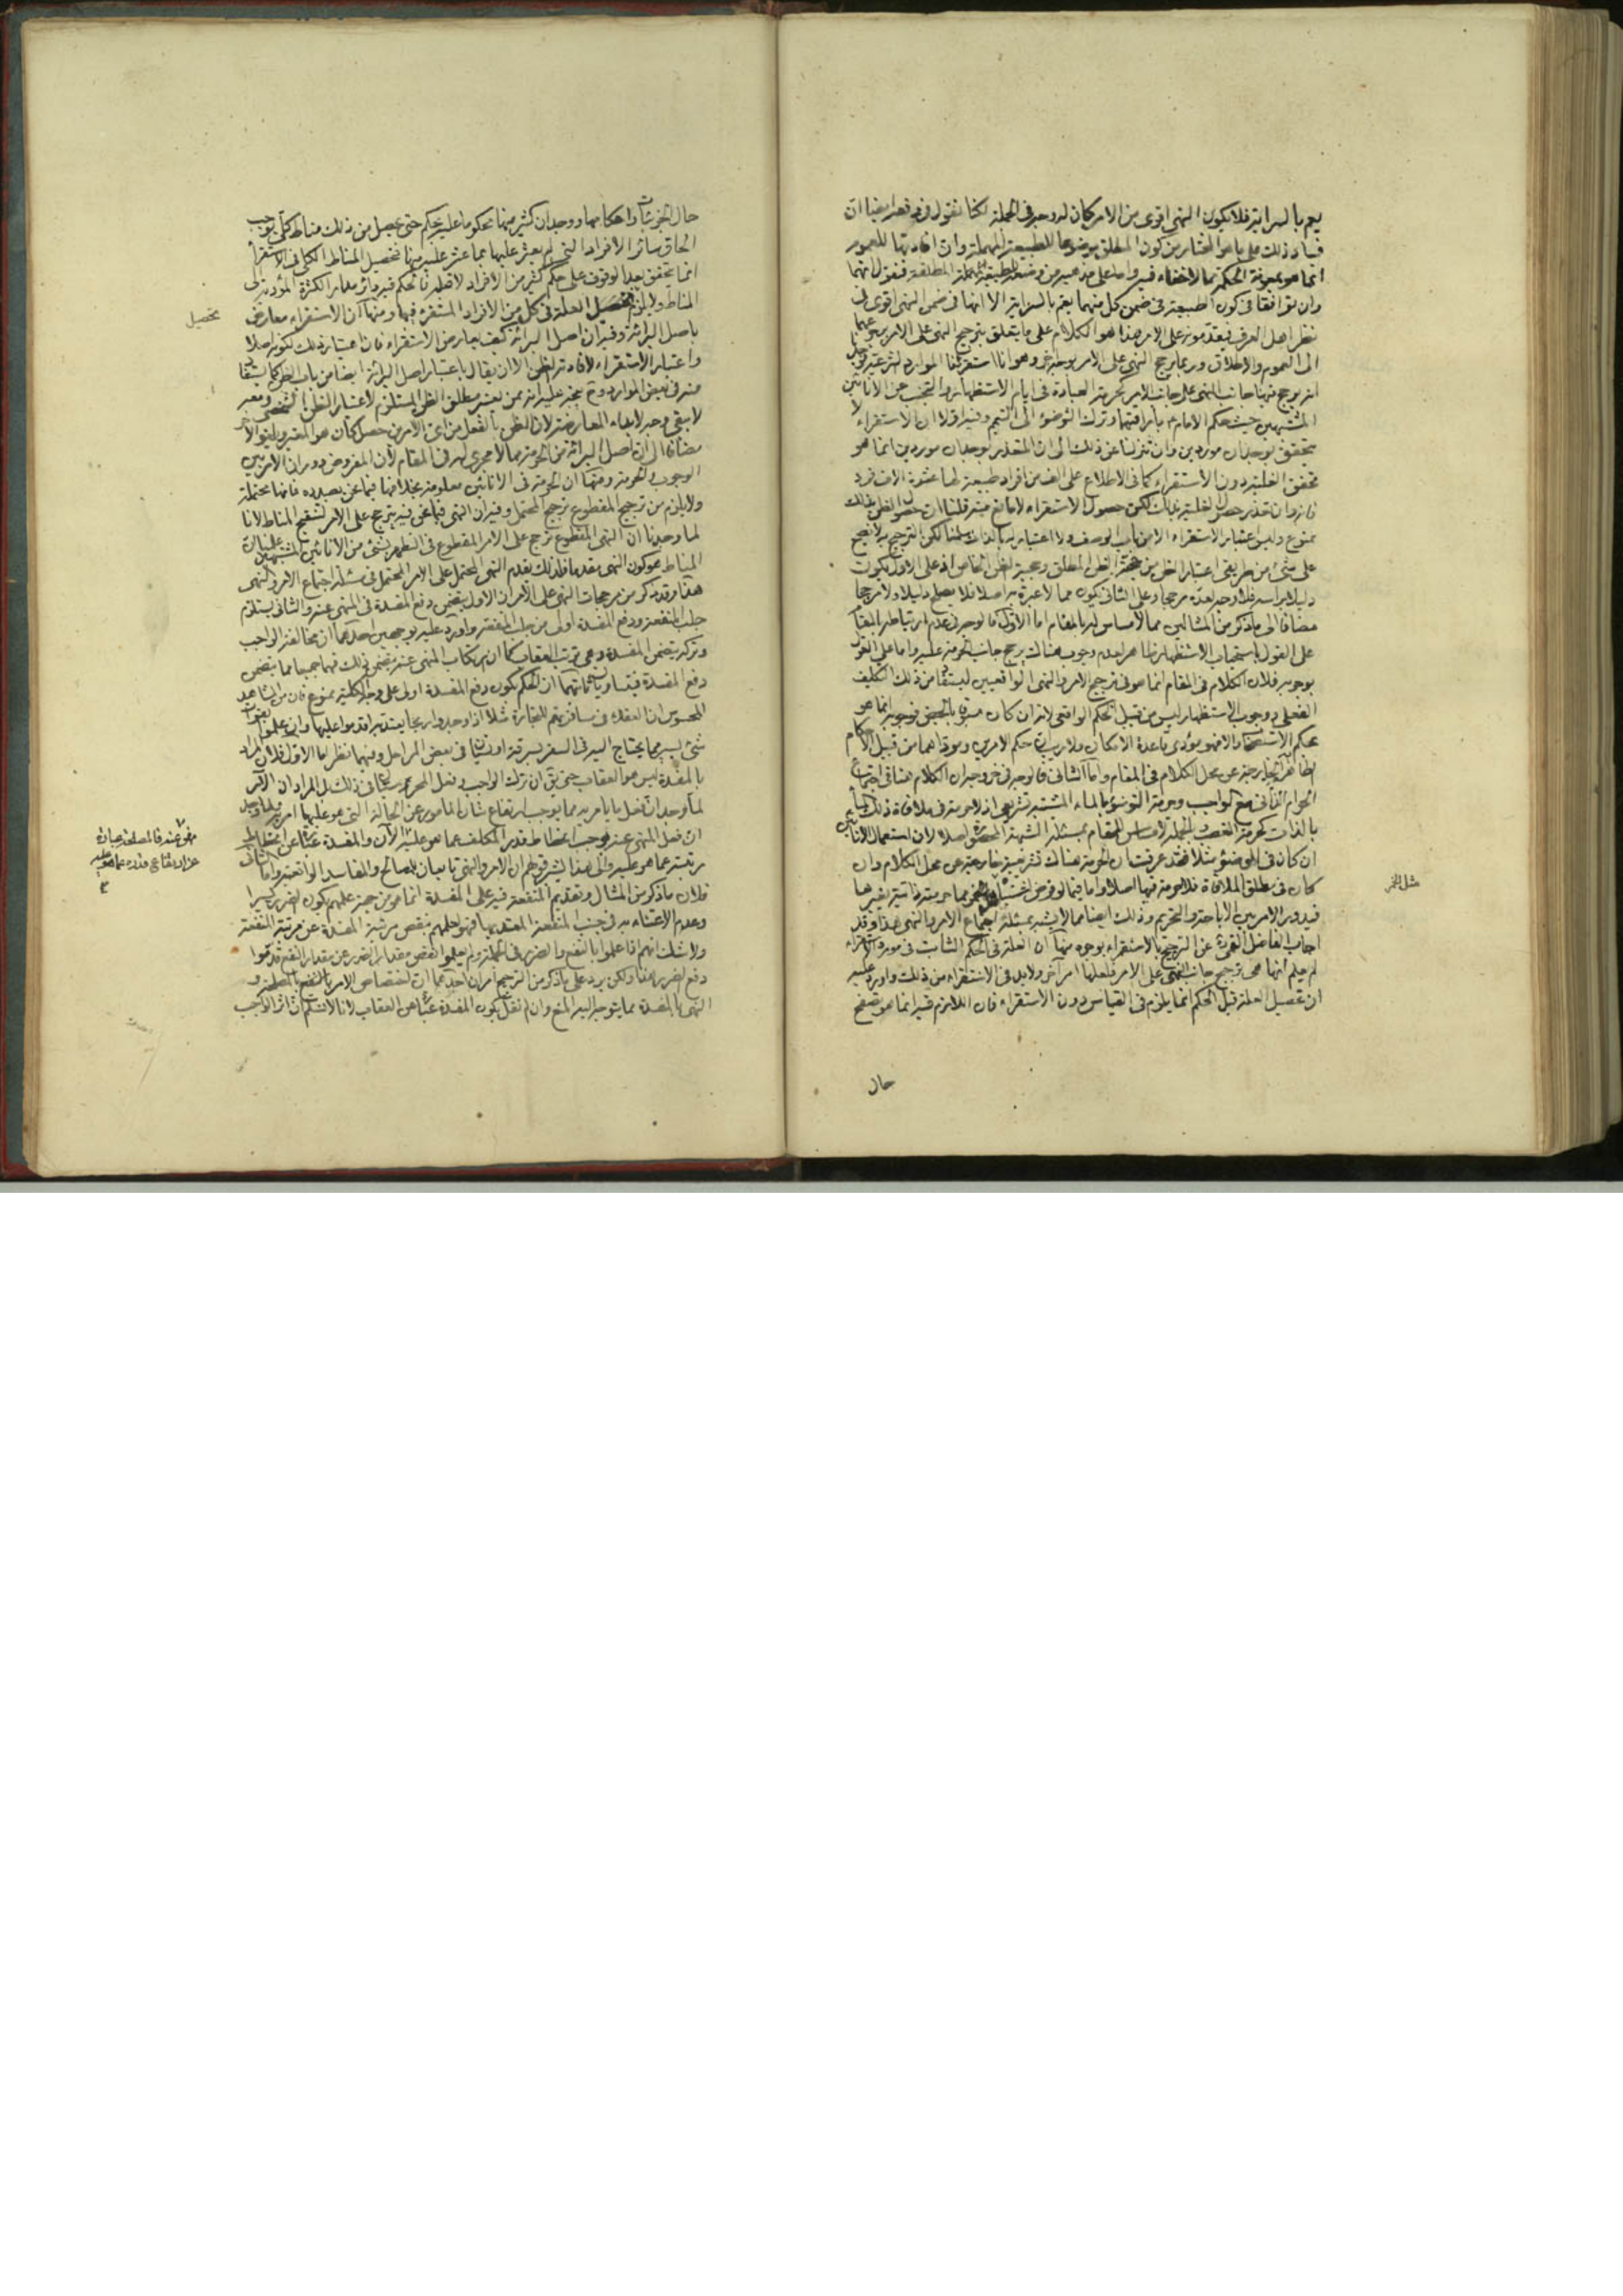 يعم بالسراية فلا يكون النهي اقوى من الامر كان له وجه في الجملة لكنا نقول في دفعه ايضا ان
فساد ذلك على ما هو المختار من كون المطلق موضوعا للطبيعة المهملة وان افادتها للعموم
انما هو بمعونة الحكمة مما لا خفاء فيه واما على مذهب من وضعه للطبيعة المطلقة فنقول انهما
وان توافقا في كون الطبيعة في ضمن كل منهما يعم بالسراية الا انها في ضمن النهي اقوى في
نظر اهل العرف فيقدمونه على الامر هذا هو الكلام على ما يتعلق بترجيح النهي على الامر
الى العموم والاطلاق وربما يرجح النهي على الامر بوجه اخر وهو انا استقرئنا الموارد الشرعية
انه يرجح فيها جانب النهي على جانب الامر كحرمة العبادة في ايام الاستظهار والتجنب عن الانائين
المشتبهين حيث حكم الامام ع باراقتهما وترك التوضؤ الى التيمم وفيه اولا ان الاستقراء لا
يتحقق بوجدان موردين وان تنزلنا عن ذلك الى ان المقدر بوجدان موردين انما هو
تحقق الغلبة دون الاستقراء كما في الاطلاع على الف من افراد طبيعة لها عشرة الاف فرد
فانه وان قدر حصول الغلبة بذلك لكن حصول الاستقراء لا مانع منه قلنا ان حصول الظن بذلك
ممنوع وليس اعتبار الاستقراء الا من باب الوصف ولا اعتبار به بالذات سلمنا لكن الترجيح به لا يصح
على شيء من طريقي اعتبار الظن من حجية الظن المطلق وحجية الظن الخاص اذ على الاول يكون
دليلا براسه فلا وجه لعده مرجحا وعلى الثاني يكون مما لا عبرة به اصلا فلا يصلح دليلا ولا مرجحا
مضافا الى ما ذكر من المثالين مما لا مساس له بالمقام اما الاول فالوجه في عدم ارتباطه بالمقام
على القول باستحباب الاستظهار ظاهر لعدم وجوب هناك يرجح جانب الحرمة عليه واما على القول
بوجوبه فلان الكلام في المقام انما هو في ترجيح الامر والنهي الواقعيين ليستفاد من ذلك التكليف
الفعلي ووجوب الاستظهار ليس من قبيل الحكم الواقعي لانه ان كان مسبوقا بالحيض فوجوبه انما هو
بحكم الاستصحاب والا فهو مؤدى قاعدة الامكان ولا ريب ان حكم الامرين ومؤداهما من قبيل الاحكام
الظاهرية الخارجة عن محل الكلام في المقام واما الثاني فالوجه في خروجه ان الكلام هنا في اجتماع
الحرام الذاتي مع الواجب وحرمة التوضؤ بالماء المشتبه تشريعي اذ لا حرمة في ملاقاة ذلك الماء
بالذات كحرمة الغصب بالجملة لا مساس للمقام بمسئلة الشبهة المحصورة اصلا لان استعمال الانائين
ان كان في الوضوء مثلا فقد عرفت ان الحرمة هناك تشريعية خارجة عن محل الكلام وان
كان في مطلق الملاقاة فلا حرمة فيها اصلا واما فيما لو فرض مما حرمته ذاتية بغيرها
فيدور الامر بين الاباحة والتحريم وذلك ايضا مما لا يشبه بمسئلة اجتماع الامر والنهي هذا وقد
اجاب الفاضل القمي ره عن الترجيح بالاستقراء بوجوه منها ان العلة في الحكم الثابت في مورد الاستقراء
لم يعلم انها هي ترجيح جانب النهي على الامر فلعلها امر آخر ولا بد في الاستقراء من ذلك واورد عليه
ان تحصيل العلة قبل الحكم انما يلزم في القياس دون الاستقراء فان اللازم فيه انما هو تصفح
حال
حال الجزئيات واحكامها ووجدان كثير منها محكوما عليه بحكم حتى يحصل من ذلك مناط كلي يوجب
الحاق سائر الافراد التي لم يعثر عليها بما عثر عليه منها فتحصيل المناط الكلي في الاستقراء
انما يتحقق بعد الوقوف على حكم كثير من الافراد لا قبله فالحكم فيه دائر مدار الكثرة المؤدية الى
المناط ولا يلزم تحصيل العلة في كل من الافراد المستقرء فيها ومنها ان الاستقراء معارض
تحصيل
باصل البرائة وفيه ان اصل البرائة كيف يعارض الاستقراء فان اعتباره ذلك لكونه اصلا
واعتبار الاستقراء لافادته الظن الا ان يقال باعتبار اصل البرائة ايضا من باب الظن كما يستفاد
منه في بعض الموارد
لا يبقى وجه لابداء المعارضة لان الظن بالفعل من اي الامرين حصل كان هو المعتبر
مضافا الى ان اصل البرائة من الحرمة مما لا مجرى له في المقام لان المفروض دوران الامر بين
الوجوب والحرمة ومنها ان الحرمة في الانائين معلومة بخلافها فيما نحن بصدده فانها محتملة
ولا يلزم من ترجيح المقطوع ترجيح المحتمل وفيه ان النهي فيما نحن فيه يترجح على الامر لتنقيح المناط لانا
لما وجدنا ان النهي المقطوع ترجح على الامر المقطوع في التطهر بشيء من الانائين المشتبهين علمنا ان
المناط هو كون النهي مقدما فلذلك يقدم النهي المحتمل على الامر المحتمل في مسئلة اجتماع الامر والنهي
هذا وقد ذكر من مرجحات النهي على الامر ان الاول يتضمن دفع المفسدة في المنهي عنه والثاني يستلزم
جلب المنفعة ودفع المفسدة اولى من جلب المنفعة واورد عليه بوجهين احدهما ان مخالفة الواجب
وتركه يتضمن المفسدة وهي ترتب العقاب كما ان ارتكاب المنهي عنه يتضمن ذلك فهما جميعا مما يتضمن
دفع المفسدة فيتساويان ثانيهما ان الحكم بكون دفع المفسدة اولى على وجه الكلية ممنوع فان من المشاهد
المحسوس ان العقلاء في مسافرتهم للتجارة مثلا اذا وجدوا ربحا يعتد به اقدموا عليها وان علموا بفوات
شيء يسير مما يحتاج اليه في السفر بسرقة او نسيان في بعض المراحل وفيهما نظر اما الاول فلان المراد
بالمفسدة ليس هو العقاب حتى يق ان ترك الواجب وفعل الحرام سيان في ذلك بل المراد ان الامر
لما وجد ان فعل ما يامر به مما يوجب ارتفاع شان المامور عن الحالة التي هو عليها امر به ولما وجد
ان فعل المنهي عنه يوجب انحطاط قدر المكلف عما هو عليه الان والمفسدة عبارة عن انحطاط
نهى عنه فالمصلحة عبارة
عن ارتفاع قدره عما هو عليه
مرتبته عما هو عليه والى هذا ان الامر والنهي تابعان للمصالح والمفاسد الواقعية واما الثاني
فلان ما ذكر من المثال وتقديم المنفعة فيه على المفسدة انما هو من جهة علمهم بكون الضرر يسيرا
وعدم الاعتناء به في جنب المنفعة المعتد بها فهو لعلمهم بنقص مرتبة المفسدة عن مرتبة المنفعة
ولا شك انهم اذا علموا بالنفع والضرر في الجملة ولم يعلموا نقص مقدار الضرر عن مقدار النفع قدموا
دفع الضرر هذا ولكن يرد على ما ذكر من الترجيح امران احدهما ان اختصاص الامر بالنفع بالمصلحة و
النهي بالمفسدة مما يتوجه اليه المنع وان لم نقل بكون المفسدة عبارة عن العقاب لانا لا نسلم ان اثر الواجب
مثل الخمر